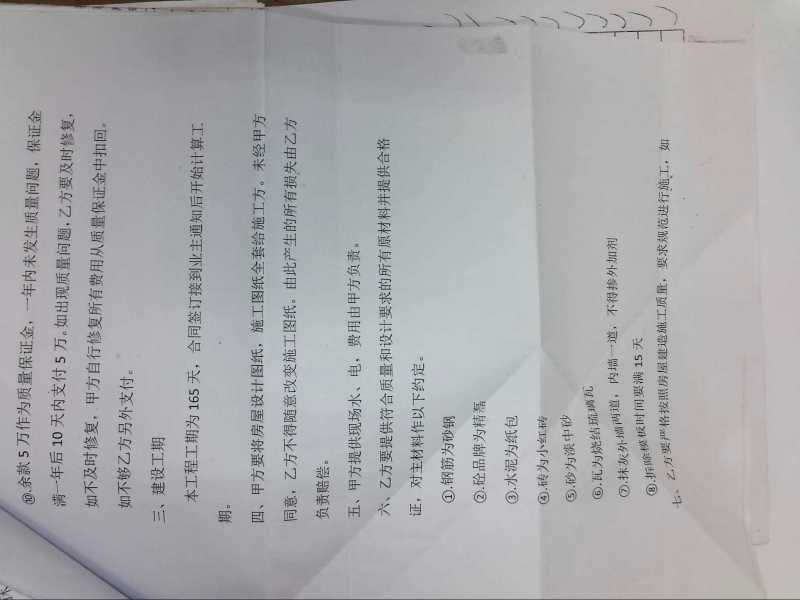 ⑩.余款 5 万作为质量保证金，一年内未发生质量问题，保证金
满一年后 10 天内支付 5 万。如出现质量问题，乙方要及时修复，
如不及时修复，甲方自行修复所有费用从质量保证金中扣回。
如不够乙方另外支付。
三、建设工期
本工程工期为 165 天，合同签订接到业主通知后开始计算工
期。
四、甲方要将房屋设计图纸，施工图纸全套给施工方。未经甲方
同意，乙方不得随意改变施工图纸。由此产生的所有损失由乙方
负责赔偿。
五、甲方提供现场水、电，费用由甲方负责。
六、乙方要提供符合质量和设计要求的所有原材料并提供合格
证，对主材料作以下约定。
①.钢筋为砂钢
②.砼品牌为精磊
③.水泥为纸包
④.砖为小红砖
⑤.砂为淡中砂
⑥.瓦为烧结琉璃瓦
⑦.抹灰外墙两道，内墙一道，不得掺外加剂
⑧.拆除模板时间要满 15 天
七、乙方要严格按照房屋建造施工质量，要求规范进行施工，如